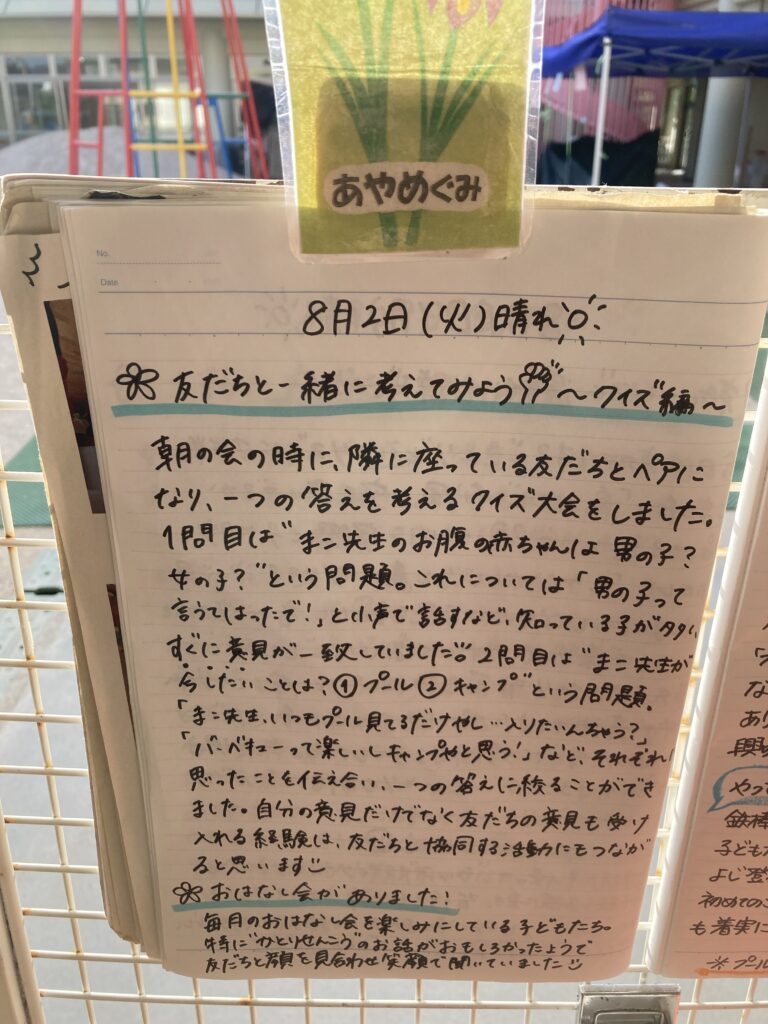 あやめぐみ
No.
Date
8月2日(火)晴れ
友だちと一緒に考えてみよう ～クイズ編～
朝の会の時に、隣に座っている友だちとペアに
なり、一つの答えを考えるクイズ大会をしました。
1問目は"まこ先生のお腹の赤ちゃんは男の子?
女の子?"という問題。これについては「男の子って
言うてはったで!」と小声で話すなど、知っている子が多く、
すぐに意見が一致していました 2問目は"まこ先生が
今したいことは?①プール②キャンプ"という問題。
「まこ先生、いつもプール見てるだけやし…入りたいんちゃう?」
「バーベキューって楽しいしキャンプやと思う!」など、それぞれ
思ったことを伝え合い、一つの答えに絞ることができ
ました。自分の意見だけでなく友だちの意見も受け
入れる経験は、友だちと協同する活動にもつなが
ると思います
おはなし会がありました!
毎月のおはなし会を楽しみにしている子どもたち。
特に"かとりせんこう"のお話がおもしろかったようで
友だちと顔を見合わせ笑顔で聞いていました
な
あり
興
やって
鉄棒
子どもた
よじ登
初めてのこ
も着実に
※プール